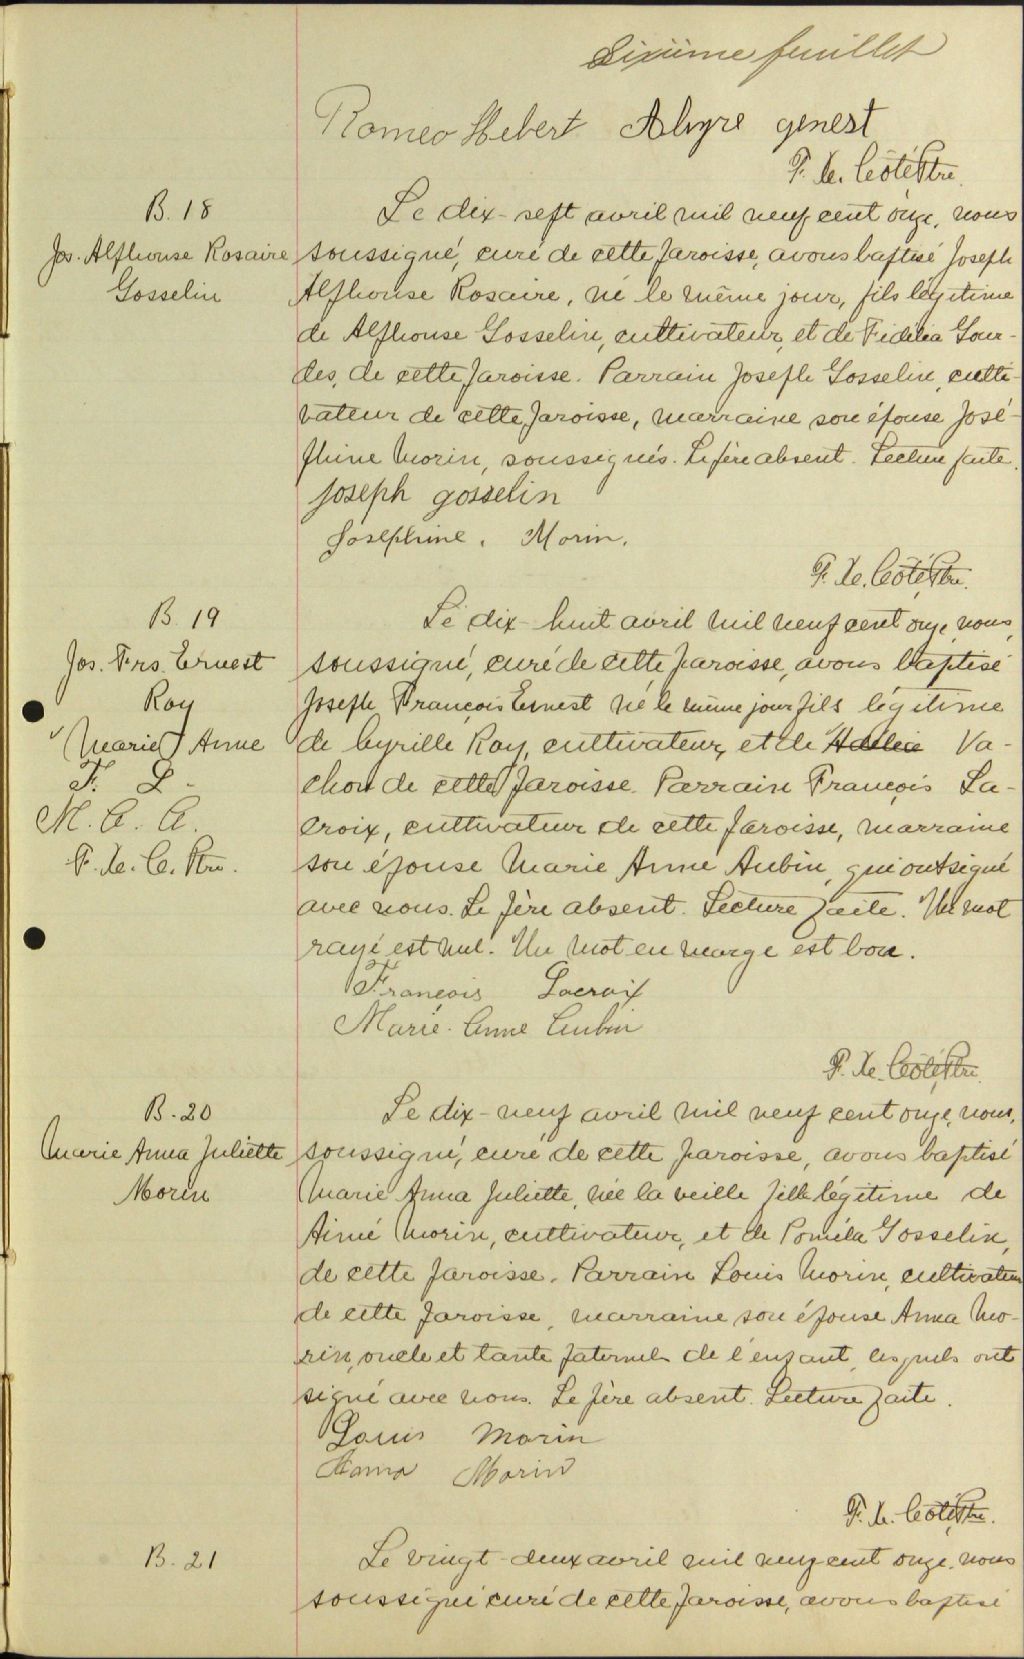 Sixième feuillet
Romeo Hebert Alyre genest
F. X. Côté, Ptre.
B. 18
Jos. Alphonse Rosaire
Gosselin
Le dix-sept avril mil neuf cent onze, nous
soussigné, curé de cette paroisse, avons baptisé Joseph
Alphonse Rosaire, né le même jour, fils légitime
de Alphonse Gosselin, cultivateur, et de Fidélia Gour-
des, de cette paroisse. Parrain Joseph Gosselin, culti-
vateur de cette paroisse, marraine son épouse José-
phine Morin, soussignés. Le père absent. Lecture faite.
Joseph gosselin
Josephine. Morin.
F. X. Côté, Ptre.
B. 19
Jos. Frs. Ernest
Roy
Marie Anne
F. L.
M. A. A.
F. X. C. Ptre.
Le dix-huit avril mil neuf cent onze, nous,
soussigné, curé de cette paroisse, avons baptisé
Joseph François Ernest né le même jour fils légitime
de Cyrille Roy, cultivateur, et de Va-
chon de cette paroisse. Parrain François La-
croix, cultivateur de cette paroisse, marraine
son épouse Marie Anne Aubin, qui ont signé
avec nous. Le père absent. Lecture faite. Un mot
rayé est nul. Un mot en marge est bon.
François Lacroix
Marie-Anne Aubin
F. X. Côté, Ptre.
B. 20
Marie Anna Juliette
Morin
Le dix-neuf avril mil neuf cent onze, nous,
soussigné, curé de cette paroisse, avons baptisé
Marie Anna Juliette, née la veille fille légitime de
Aimé Morin, cultivateur, et de Poméla Gosselin,
de cette paroisse. Parrain Louis Morin, cultivateur
de cette paroisse, marraine son épouse Anna Mo-
rin, oncle et tante paternels de l'enfant, lesquels ont
signé avec nous. Le père absent. Lecture faite.
Louis Morin
Anna Morin
F. X. Côté, Ptre.
B. 21
Le vingt-deux avril mil neuf cent onze, nous
soussigné curé de cette paroisse, avons baptisé